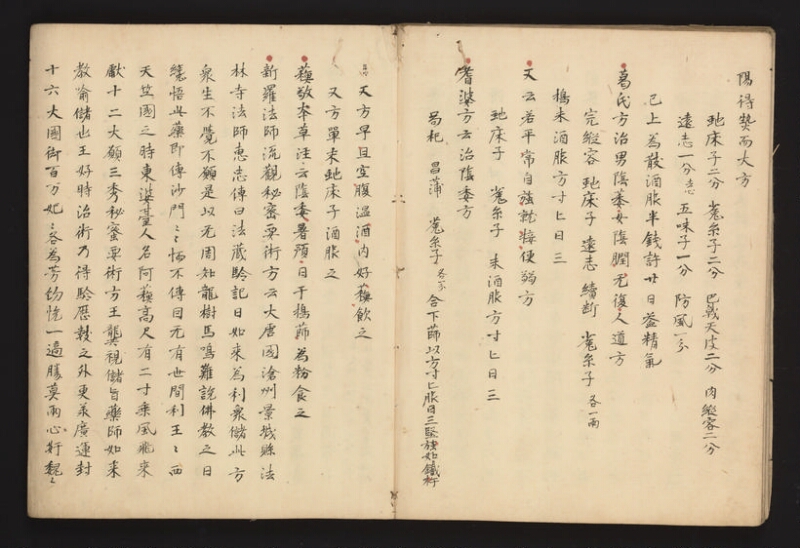 陽得契而大方
虵床子二分 菟糸子二分 巴戟天皮二分 肉縱容二分
遠志一分 五味子一分 防風一分
已上為散酒服半錢許廿日益精氣
葛氏方治男陰萎女陰䐃无復人道方
完縱容 虵床子 遠志 續斷 菟糸子 各一兩
搗末酒服方寸匕日三
又云若平常自強就接便弱方
虵床子 菟糸子 末酒服方寸匕日三
耆婆方云治陰委方
昌蒲 菟糸子 各 合下篩以方寸匕服日三堅強如鐵杵
又方早旦空腹溫酒內好蘇飲之
又方單末虵床子酒服之
蘇敬本草注云陰委署預日干搗篩為粉食之
新羅法師流觀秘密要術方云大唐國滄州景城縣法
林寺法師惠忠傳曰法藏驗記曰如來為利眾儲此方
眾生不覺不願是以无周知龍樹馬鳴難說佛教之日
纔悟此藥即傳沙門〻〻悋不傳曰元有世間利王〻〻西
天竺國之時東婆臺人名阿蘇高尺有二寸乘風飛來
獻十二大願三秀秘蜜要術方王龔視儲旨藥師如來
教喻儲也王好時治術乃得驗歷數之外更羕廣運封
十六大國御百万妃〻各為芳飴恍一適勝莫兩心奸魏〻